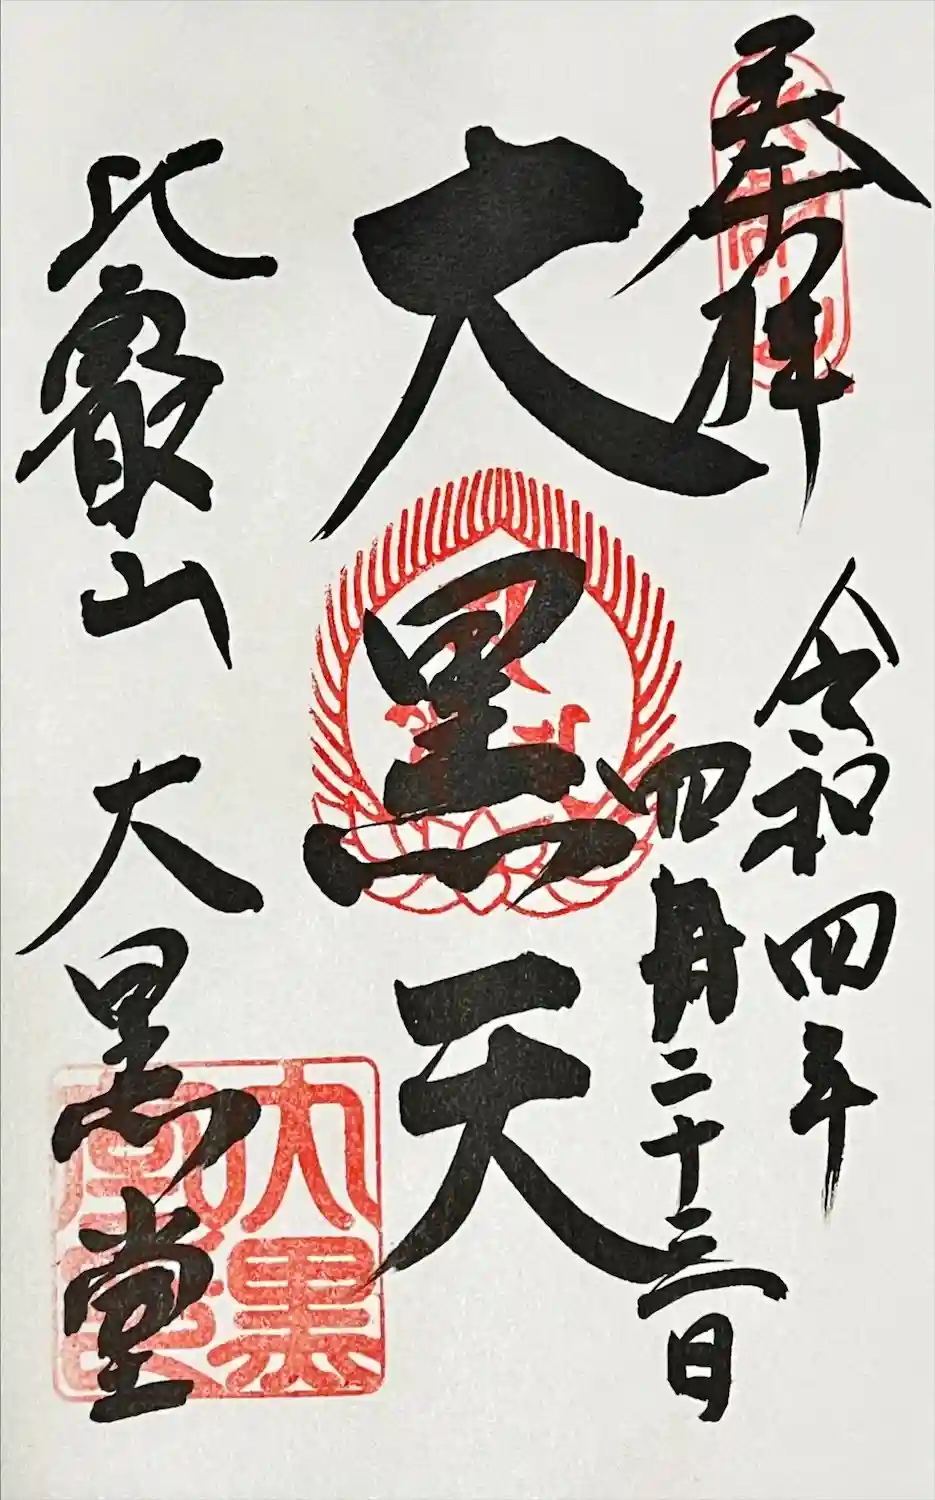 奉拝
令和四年
四月二十三日
大黒天
比叡山 大黒堂
大黒堂